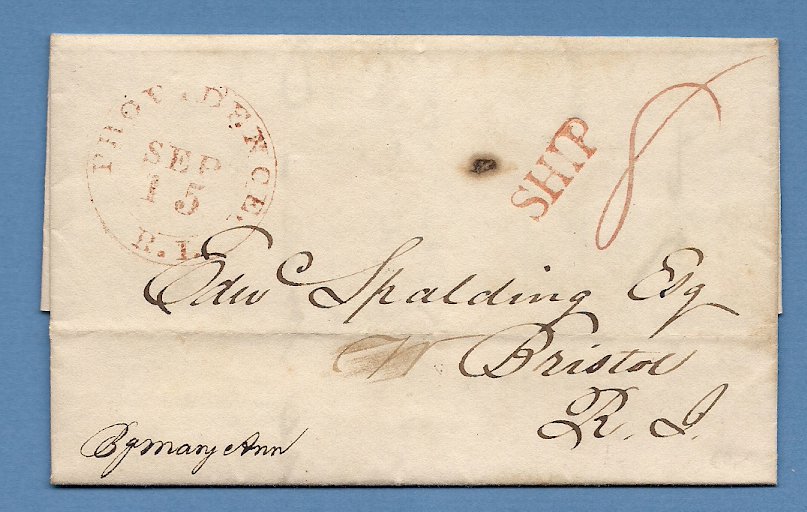 PROVIDENCE.
SEP
15
R.I.
SHIP
8
Edwd Spalding Esq
Bristol
R. I.
Bg Mary Ann